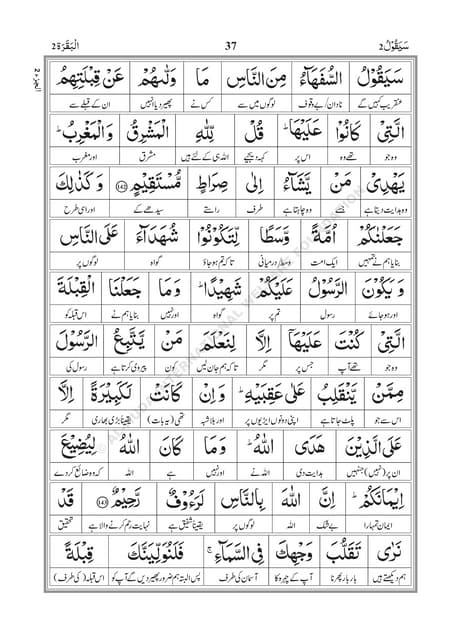 سَيَقُوْلُ 2 37 اَلْبَقَرَة 2
سَيَقُوْلُ السُّفَهَآءُ مِنَ النَّاسِ مَا وَلّٰىهُمْ عَنْ قِبْلَتِهِمُ
عنقریب کہیں گے نادان/بے وقوف لوگوں میں سے کس نے پھیر دیا انہیں ان کے قبلے سے
الَّتِيْ كَانُوْا عَلَيْهَا ؕ قُلْ لِّلّٰهِ الْمَشْرِقُ وَالْمَغْرِبُ ؕ
وہ جو تھے وہ اس پر کہہ دیجیے اللہ ہی کے لئے ہیں مشرق اور مغرب
يَهْدِيْ مَنْ يَّشَآءُ اِلٰى صِرَاطٍ مُّسْتَقِيْمٍ ﴿142﴾ وَكَذٰلِكَ
وہ ہدایت دیتا ہے جسے وہ چاہتا ہے طرف راستے سیدھے کے اور اسی طرح
جَعَلْنٰكُمْ اُمَّةً وَّسَطًا لِّتَكُوْنُوْا شُهَدَآءَ عَلَى النَّاسِ
بنایا ہم نے تمہیں ایک امت وسط/درمیانی تاکہ تم ہو جاؤ گواہ لوگوں پر
وَيَكُوْنَ الرَّسُوْلُ عَلَيْكُمْ شَهِيْدًا ؕ وَمَا جَعَلْنَا الْقِبْلَةَ
اور ہو جائے رسول تم پر گواہ اور نہیں بنایا ہم نے اس قبلہ کو
الَّتِيْ كُنْتَ عَلَيْهَآ اِلَّا لِنَعْلَمَ مَنْ يَّتَّبِعُ الرَّسُوْلَ
وہ جو تھے آپ جس پر مگر تاکہ ہم جان لیں کون پیروی کرتا ہے رسول کی
مِمَّنْ يَّنْقَلِبُ عَلٰى عَقِبَيْهِ ؕ وَاِنْ كَانَتْ لَكَبِيْرَةً اِلَّا
اس سے جو پلٹ جاتا ہے اپنی دونوں ایڑیوں پر اور بلاشبہ تھی (یہ بات) یقیناً بڑی بھاری مگر
عَلَى الَّذِيْنَ هَدَى اللّٰهُ ؕ وَمَا كَانَ اللّٰهُ لِيُضِيْعَ
ان پر (نہیں) جنہیں ہدایت دی اللہ نے اور نہیں ہے اللہ کہ وہ ضائع کر دے
اِيْمَانَكُمْ ؕ اِنَّ اللّٰهَ بِالنَّاسِ لَرَءُوْفٌ رَّحِيْمٌ ﴿143﴾ قَدْ
ایمان تمہارا بے شک اللہ لوگوں پر یقیناً شفیق ہے نہایت رحم کرنے والا ہے تحقیق
نَرٰى تَقَلُّبَ وَجْهِكَ فِي السَّمَآءِ ۚ فَلَنُوَلِّيَنَّكَ قِبْلَةً
ہم دیکھتے ہیں بار بار پھرنا آپ کے چہرہ کا آسمان کی طرف پس البتہ ہم ضرور پھیر دیں گے آپ کو اس قبلہ (کی طرف)